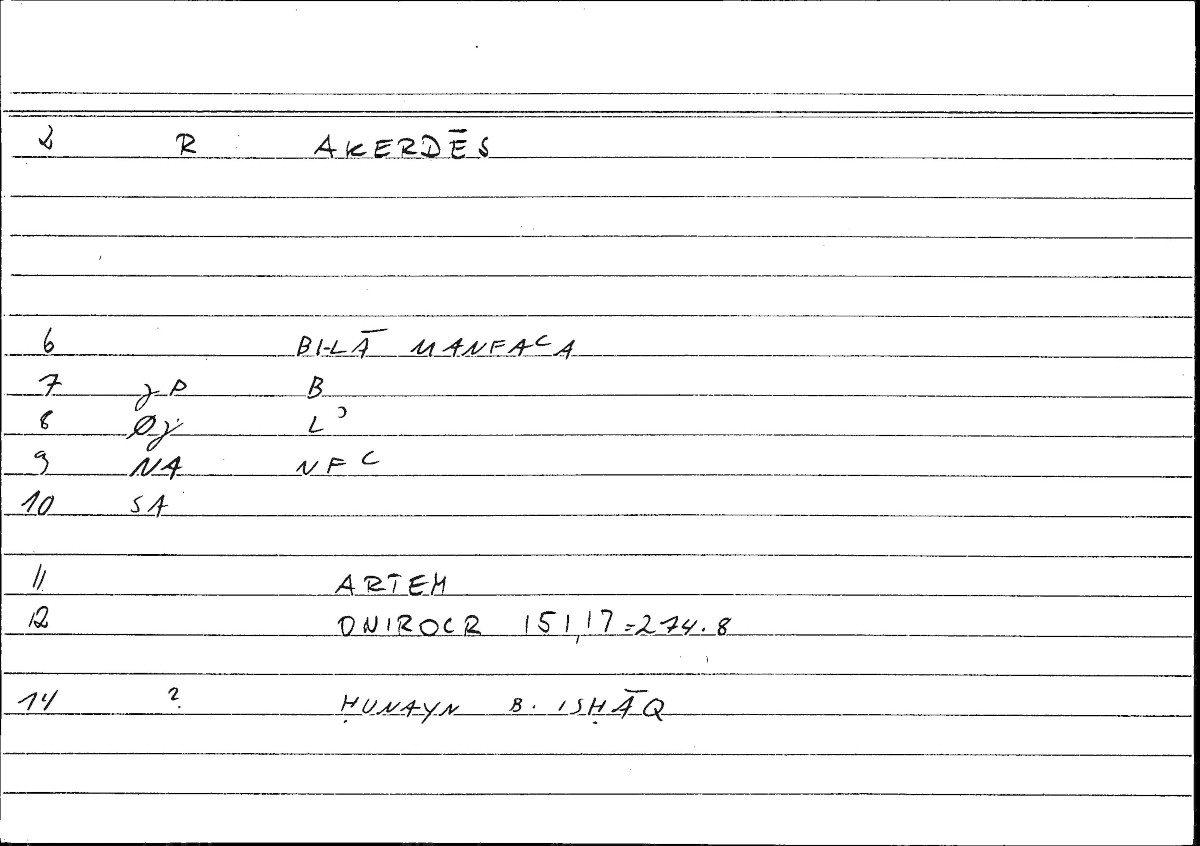 2 R AKERDĒS
6 BI-LĀ MANFAʿA
7 γP B
8 Øγ Lʾ
9 NA NFʿ
10 SA
11 ARTEM
12 ONIROCR 151,17=274.8
14 ? ḤUNAYN B. ISḤĀQ